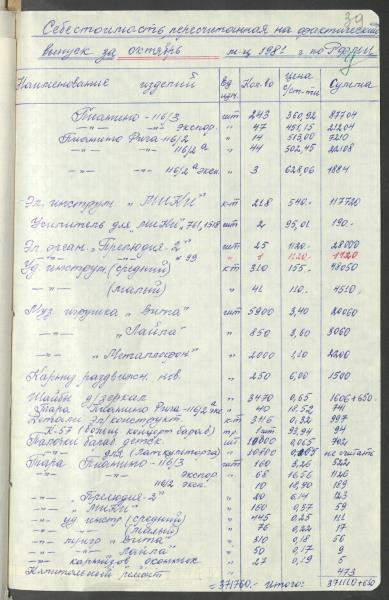 39
Себестоимость пересчитанная на фактический
выпуск за октябрь м-ц 1981 г по РФ
Наименование изделий Ед. изм. Кол-во цена Сумма
Пианино - 116/3 шт 243 360,92 87704
—"— —"— экспор. " 47 451,15 21204
Пианино Рига-116/2 " 14 515,00 7210
—"— —"— 116/2а " 44 502,45 22108
—"— —"— 116/2а эксп. " 3 628,06 1884
Эл. инструм. "МИКИ" к-т 218 540.- 117720
Усилитель для "МИКИ", 761,1518 шт 2 95,01 190.-
Эл. орган. "Прелюдия-2" шт 25 1120.- 28000
" 99 " 1 1120.- 1120
Уд. инструм. (средний) к-т 310 155.- 48050
—"— (малый) " 41 110.- 4510.-
Муз. игрушка "Вита" шт 5900 3,40 20060
—"— "Лайпа" " 850 3,60 3060
—"— "Металлофон" " 2000 1,10 2200
Карниз раздвижн. нов. " 250 6,00 1500
Шайбы д/зеркал " 3470 0,65 1606+650.-
Тара Пианино Рига-116/2а эк " 40 18.52 741
Детали эл/конструкт к-т 3116 0,32 997
—"— К-57 шт. 93,94 94
Палочки бараб. детск. шт 10800 0,065 702
—"— —"— для " 10800 0,065 не считать
Тара Пианино-116/3 шт 160 3,26 522
—"— —"— экспор " 68 16,56 1126
—"— 116/2 эксп. " 10 18,90 189
—"— "Прелюдия-2" " 20 6,14 123
—"— "МИКИ" " 160 0,37 59
—"— уд. инстр (средний) " 445 0,25 111
—"— —"— (малый) " 76 0,22 17
—"— "Вита" " 310 0,18 56
—"— —"— "Лайпа" " 50 0,17 9
—"— карнизов " 27 0,19 5
Капитальный ремонт 473
= 371760.- Итого: 371110+650